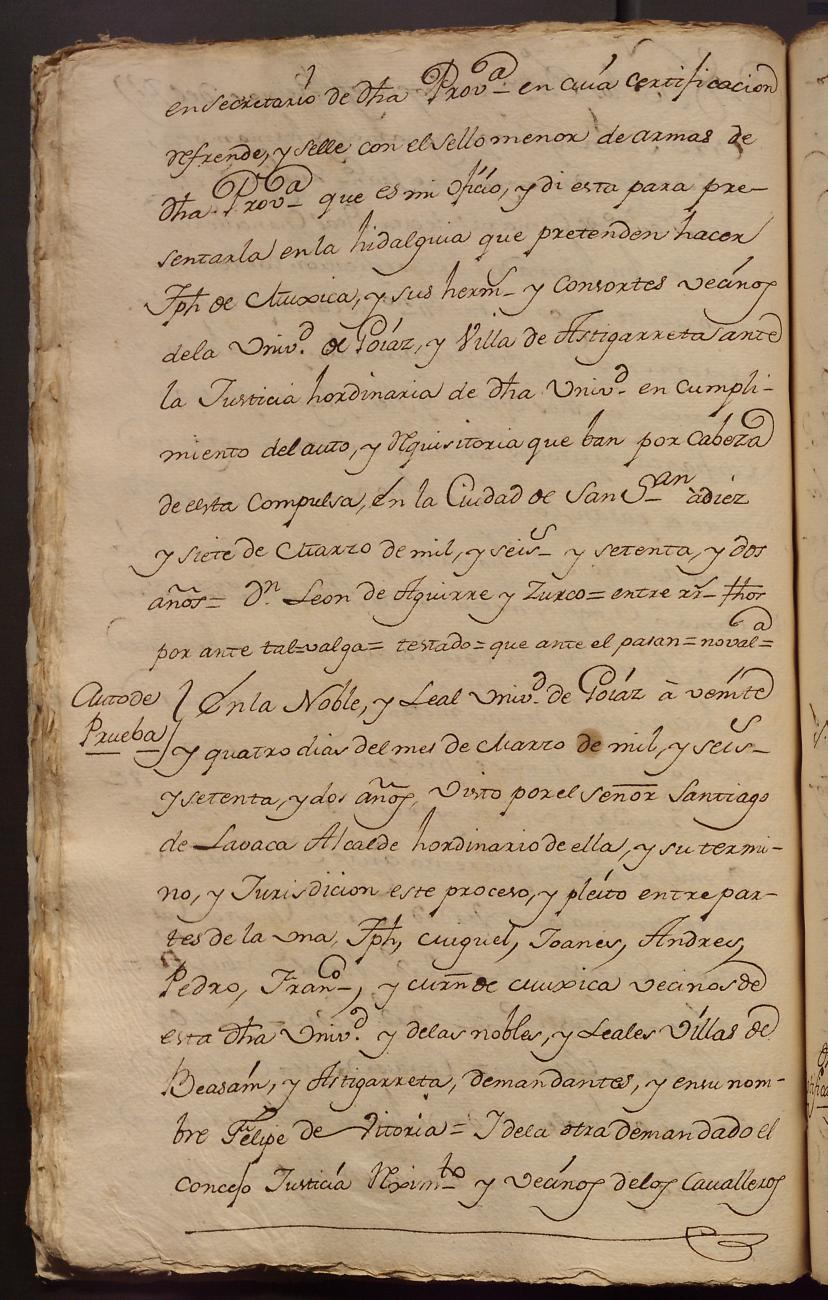 en secretario de dha Prov.ª en cuia certificacion
refrende, y selle con el sello menor de armas de
dha Prov.ª que es mi oficio, y di esta para pre-
sentarla en la hidalguia que pretenden hacer
Jph de Muxica, y sus herm.s y consortes vecinos
dela Univ.d de Goiaz, y Villa de Astigarreta ante
la Justicia hordinaria de dha Univ.d en cumpli-
miento del auto, y requisitoria que ban por cabeza
de esta compulsa, en la Ciudad de San S.an à diez
y siete de Marzo de mil, y seis.s y setenta, y dos
años= D.n Leon de Aguirre y Zurco= entre rs= thos
por ante tal=valga= testado= que ante el pasan= no val.a=
Auto de
Prueba
En la Noble, y Leal Univ.d de Goiaz à veinte
y quatro dias del mes de Marzo de mil, y seis.s
y setenta, y dos años, visto por el señor Santiago
de Lavaca Alcalde hordinario de ella, y su termi-
no, y Jurisdicion este proceso, y pleito entre par-
tes de la una, Jph, Miguel, Joanes, Andres,
Pedro, Fran.co, y Mrn de Muxica vecinos de
esta dha Univ.d y delas nobles, y Leales Villas de
Beasain, y Astigarreta, demandantes, y en su nom-
bre Felipe de Vitoria= I dela otra demandado el
concejo Justicia Rexim.to y vecinos delos Cavalleros